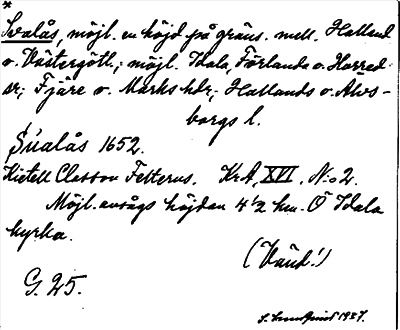 *
Svalås, möjl. en höjd på gräns. mell. Halland
o. Västergötl.; möjl. Idala, Förlanda o. Horred
sr; Fjäre o. Marks hdr; Hallands o. Älvs-
borgs l.
Sualås 1652.
Kietell Classon Felterus. KrA, XVI, N:o 2.
Möjl. avsågs höjden 4 1/2 km. Ö Idala
kyrka.
(Vänd!)
G. 25.
1927.